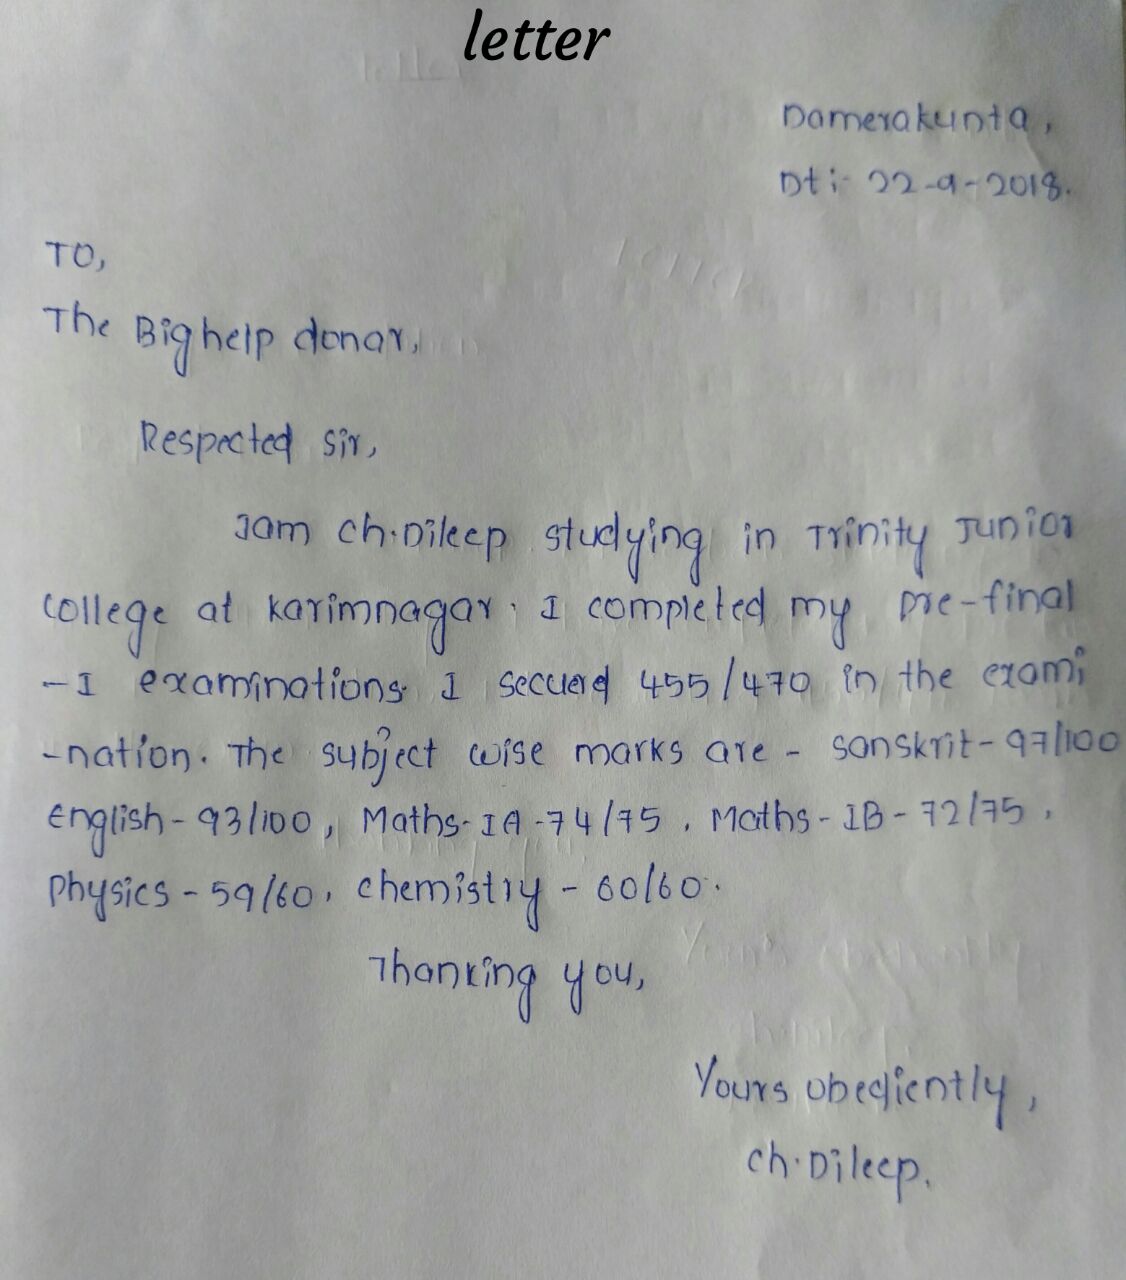 letter
Damerakunta,
Dt:- 22-9-2018.
TO,
The Big help donar,
Respected sir,
Iam ch.Dileep studying in Trinity Junior
college at karimnagar. I completed my pre-final
-I examinations. I secuerd 455/470 in the exami
-nation. The subject wise marks are - sanskrit - 97/100
English - 93/100, Maths-IA-74/75, Maths-IB-72/75,
Physics - 59/60, chemistry - 60/60.
Thanking you,
Yours obediently,
ch.Dileep.